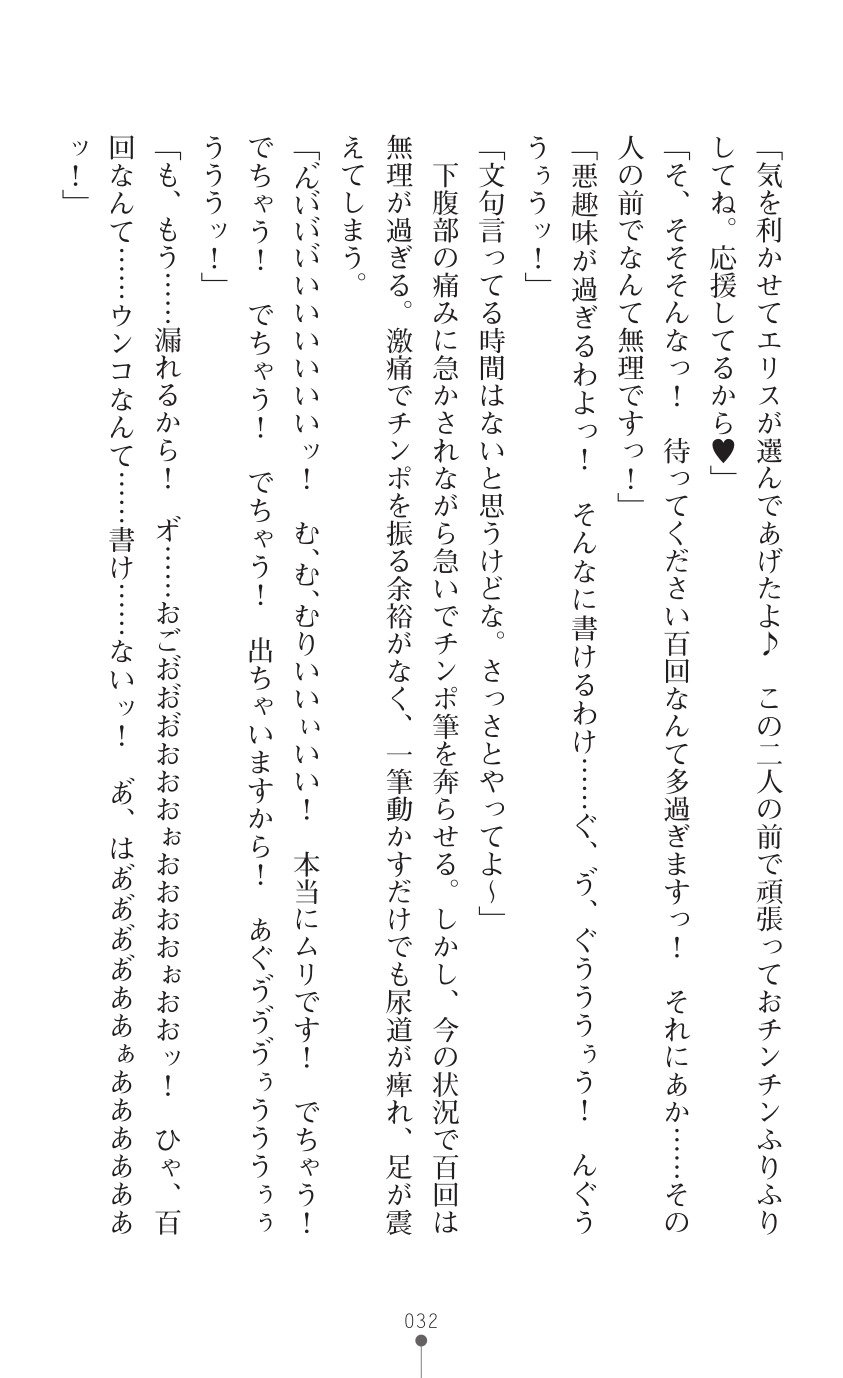 「気を利かせてエリスが選んであげたよ♪　この二人の前で頑張っておチンチンふりふり
してね。応援してるから♥」
「そ、そそそんなっ！　待ってください百回なんて多過ぎますっ！　それにあか……その
人の前でなんて無理ですっ！」
「悪趣味が過ぎるわよっ！　そんなに書けるわけ……ぐ、ゔ、ぐうううぅう！　んぐう
うぅうッ！」
「文句言ってる時間はないと思うけどな。さっさとやってよ～」
　下腹部の痛みに急かされながら急いでチンポ筆を奔らせる。しかし、今の状況で百回は
無理が過ぎる。激痛でチンポを振る余裕がなく、一筆動かすだけでも尿道が痺れ、足が震
えてしまう。
「ん゛い゛い゛い゛いいいいいいッ！　む、む、むりいいぃいい！　本当にムリです！　でちゃう！
でちゃう！　でちゃう！　でちゃう！　出ちゃいますから！　あぐゔゔゔぅうううぅぅ
うううッ！」
「も、もう……漏れるから！　オ゛……おごお゛お゛お゛おおおぉおおおおぉおおッ！　ひゃ、百
回なんて……ウンコなんて……書け……ないッ！　あ゛、はあ゛あ゛あ゛あ゛ああぁあああああああ
ッ！」
032